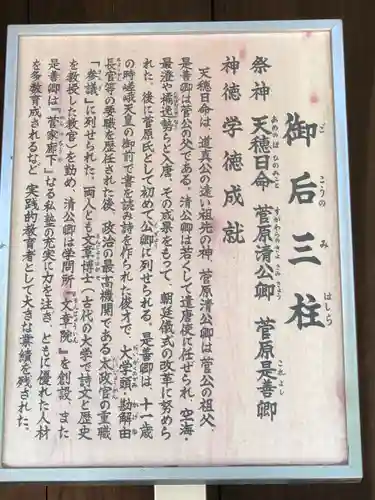 御后三柱
祭神 天穂日命 菅原清公卿 菅原是善卿
神徳 学徳成就
天穂日命は、道真公の遠い祖先の神、菅原清公卿は菅公の祖父、
是善卿は菅公の父である。清公卿は若くして遣唐使に任ぜられ、空海・
最澄や橘逸勢らと入唐、その成果をもって、朝廷儀式の改革に努めら
れた。後に菅原氏として初めて公卿に列せられる。是善卿は、十一歳
の時嵯峨天皇の御前で書を読み詩を作られた俊才で、大学頭・勘解由
長官等の要職を歴任された後、政治の最高機関である太政官の重職
「参議」に列せられた。両人とも文章博士（古代の大学で詩文と歴史
を教授した教官）を勤め、清公卿は学問所『文章院』を創設、また
是善卿は『菅家廊下』なる私塾の充実に力を注ぎ、ともに優れた人材
を多数育成されるなど、実践的教育者として大きな業績を残された。